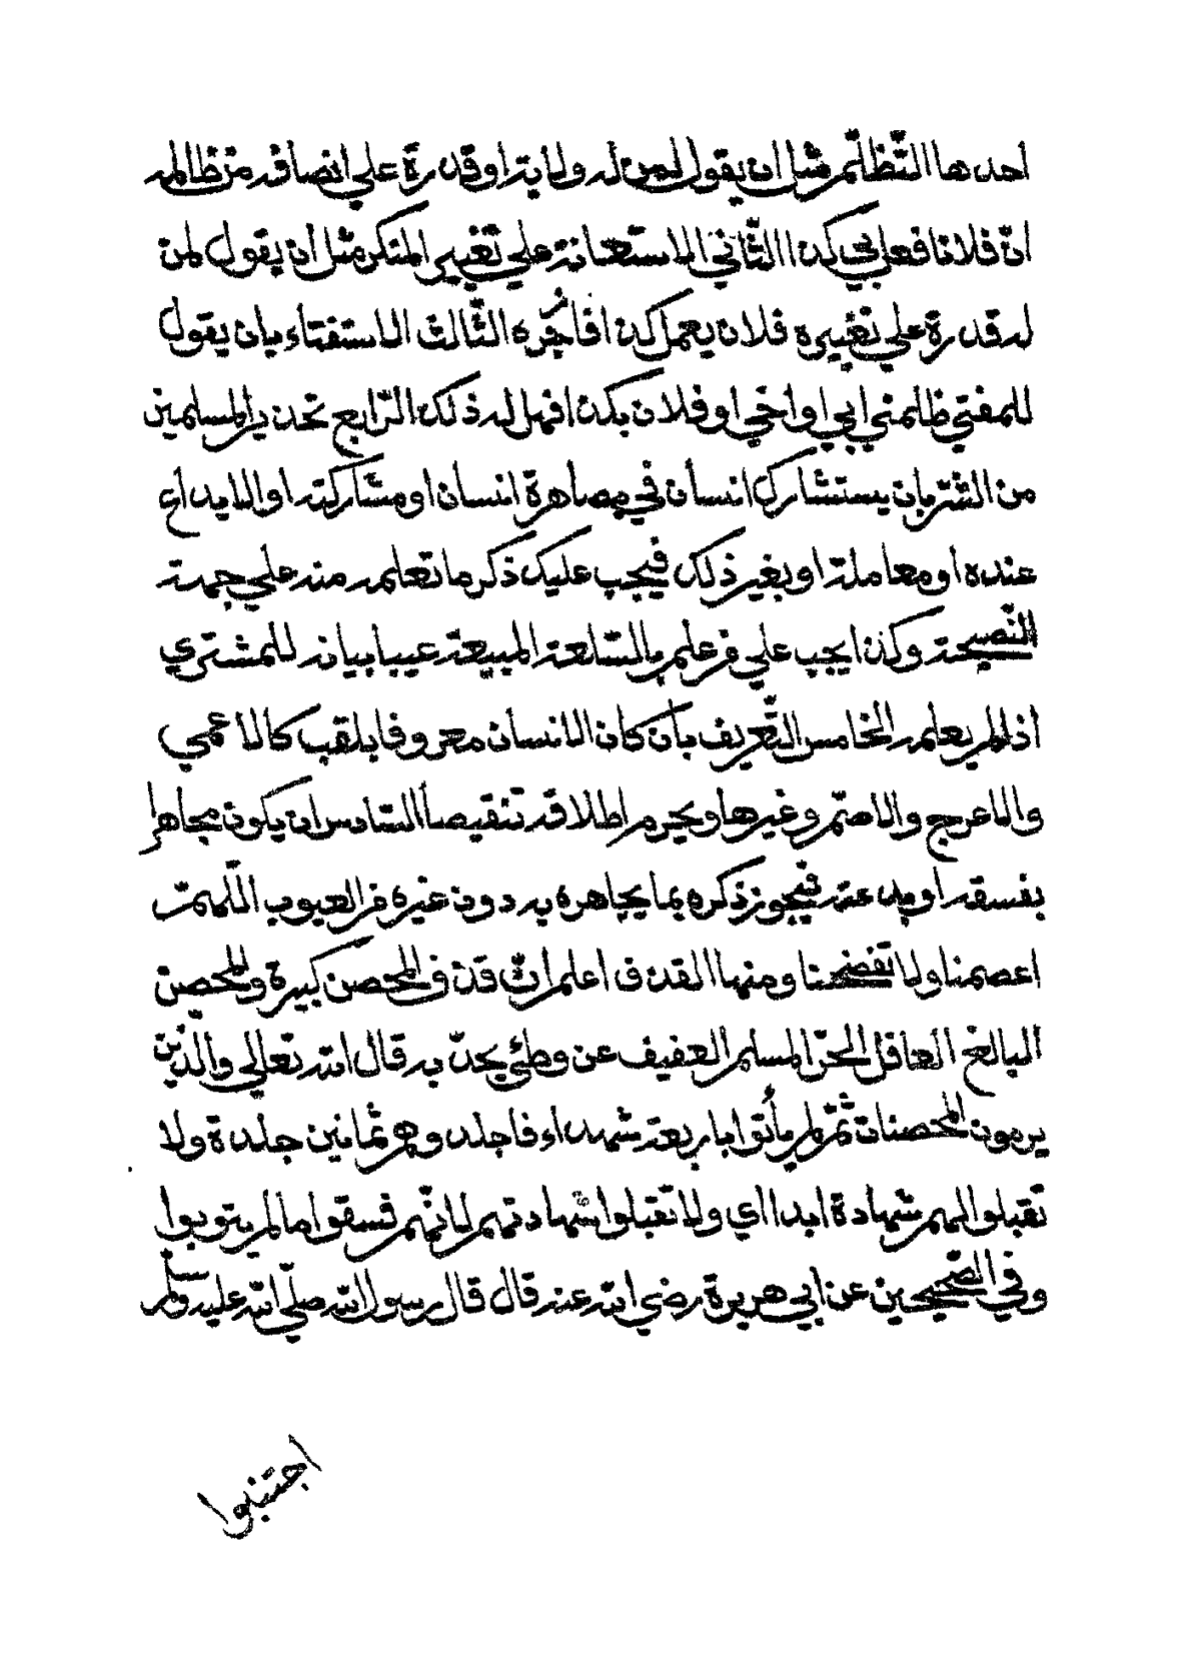 أحدها التّظلّم مثل ان يقول لمن له ولاية او قدرة علي انصافه من ظالمه
انّ فلانا فعل بي كذا الثّاني الاستعانة علي تغيير المنكر مثل أن يقول لمن
له قدرة علي تغييره فلان يعمل كذا فأجُره الثّالث الاستفتاء بان يقول
للمفتي ظلمني ابي او أخي او فلان بكذا فهل له ذلك الرّابع تحذير المسلمين
من الشّر بان يستشارك انسان في مصاهرة انسان او مشاركته او الايداع
عنده او معاملة او بغير ذلك فيجب عليك ذكر ما تعلمه منه علي جهة
النّصيحة وكذا يجب علي من علم بالسّلعة المبيعة عيبا بيانه للمشتري
اذا لم يعلمه الخامس التّعريف بأن كان الانسان معروفا بلقب كالاعمي
والاعرج والاصمّ وغيرها ويحرم اطلاقه تنقيصا السّادس ان يكون مجاهرا
بفسقه او بدعته فيجوز ذكره بما يجاهره به دون غيره من العيوب اللّهمّ
اعصمنا ولا تفضحنا ومنها القذف اعلم انّ قذف المحصن كبيرة والمحصن
البالغ العاقل الحرّ المسلم العفيف عن وطئي يحدّ به قال الله تعالي والّذين
يرمون المحصنات ثمّ لم يأتوا باربعة شهداء فاجلدوهم ثمانين جلدة ولا
تقبلوا لهم شهادة ابدا اي ولا تقبلوا شهادتهم لانّهم فسقوا ما لم يتوبوا
وفي الصّحيحين عن ابي هريرة رضي الله عنه قال قال رسول الله صلّي الله عليه وسلم
اجتنبوا